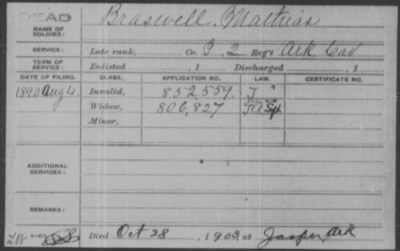 DEAD
NAME OF SOLDIER: Braswell, Mathias
SERVICE: Late rank, Co. I, 2 Reg't Ark Cav
TERM OF SERVICE: Enlisted , 1 Discharged , 1
DATE OF FILING. CLASS. APPLICATION NO. LAW. CERTIFICATE NO.
1890 Aug 4. Invalid, 852,559. J "
Widow, 806,827
Minor,
ADDITIONAL SERVICES:
REMARKS:
Died Oct 28, 190 at Jasper, Ark